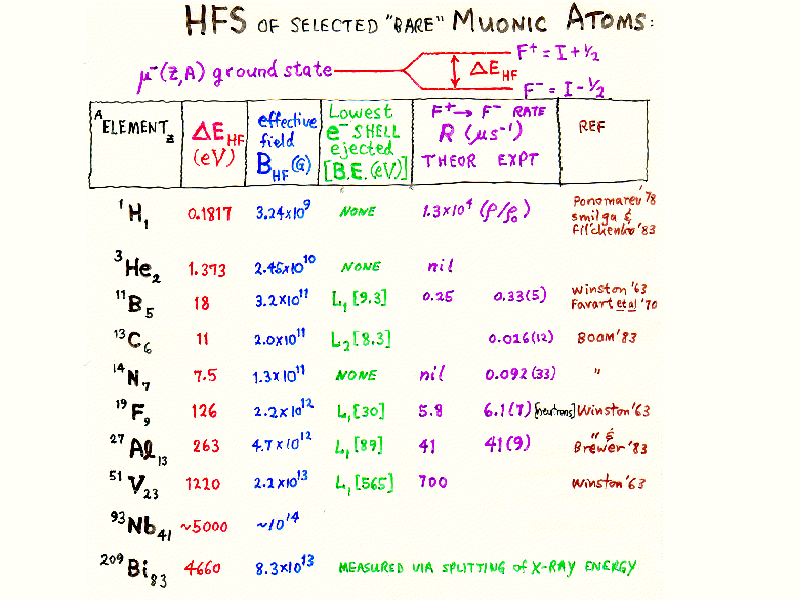 HFS OF SELECTED "BARE" MUONIC ATOMS:
F⁺ = I + 1/2
μ⁻(Z,A) ground state ΔE_HF
F⁻ = I - 1/2
A ELEMENT Z ΔE_HF (eV) effective field B_HF (G) Lowest e⁻ SHELL ejected [B.E. (eV)] F⁺ → F⁻ RATE R (μs⁻¹) THEOR EXPT REF
¹H₁ 0.1817 3.24×10⁹ NONE 1.3×10⁴ (ρ/ρ₀) Ponomarev '78 Smilga & Fil'chenko '83
³He₂ 1.373 2.45×10¹⁰ NONE nil
¹¹B₅ 18 3.2×10¹¹ L₁ [9.3] 0.25 0.33(5) Winston '63 Favart et al '70
¹³C₆ 11 2.0×10¹¹ L₂ [8.3] 0.026(12) BOOM '83
¹⁴N₇ 7.5 1.3×10¹¹ NONE nil 0.092(33) "
¹⁹F₉ 126 2.2×10¹² L₁ [30] 5.8 6.1(7) [neutrons] Winston '63
²⁷Al₁₃ 263 4.7×10¹² L₁ [89] 41 41(9) " & Brewer '83
⁵¹V₂₃ 1210 2.2×10¹³ L₁ [565] 700 Winston '63
⁹³Nb₄₁ ~5000 ~10¹⁴
²⁰⁹Bi₈₃ 4660 8.3×10¹³ MEASURED VIA SPLITTING of X-RAY ENERGY